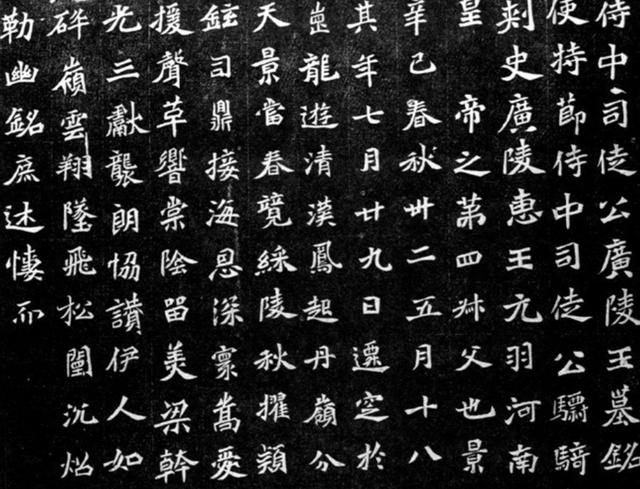 侍中司徒公廣陵王墓銘
使持節侍中司徒公驃騎
刺史廣陵惠王元羽河南
皇帝之第四叔父也景
辛巳春秋卅二五月十八
其年七月廿九日遷窆於
崑龍遊清漢鳳起丹嶺分
天景當春競綵陵秋擢穎
鉉司鼎接海恩深寰嵩愛
援聲革響棠陰留美梁幹
光三獻襲朗協讚伊人如
砕嶺雲翔墜飛松闈沉炤
勒幽銘庶述悽而